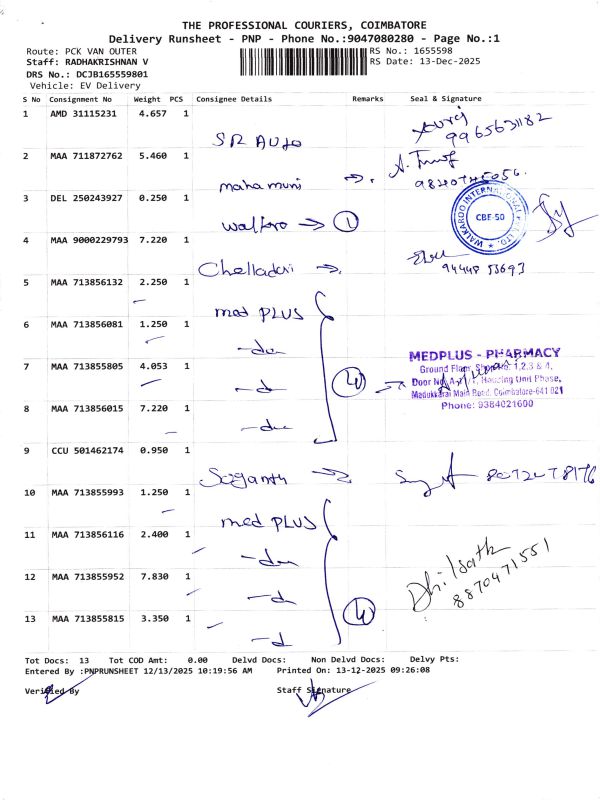 THE PROFESSIONAL COURIERS, COIMBATORE
Delivery Runsheet - PNP - Phone No.:9047080280 - Page No.:1
Route: PCK VAN OUTER
RS No.: 1655598
Staff: RADHAKRISHNAN V
RS Date: 13-Dec-2025
DRS No.: DCJB165559801
Vehicle: EV Delivery
S No Consignment No Weight PCS Consignee Details Remarks Seal & Signature
1 AMD 31115231 4.657 1
SR Auto
9965631182
2 MAA 711872762 5.460 1
mahamuni
3 DEL 250243927 0.250 1
walkro → 1
WALKAROO INTERNATIONAL
CBE-50
4 MAA 9000229793 7.220 1
Chelladuri
94448 53693
5 MAA 713856132 2.250 1
med PLUS
6 MAA 713856081 1.250 1
-do
7 MAA 713855805 4.053 1
-d
4
MEDPLUS - PHARMACY
Ground Floor, Shop No: 1,2,3 & 4,
Housing Unit Phase,
Madukkarai Main Road, Coimbatore-641 021
Phone: 9384021600
8 MAA 713856015 7.220 1
-do
9 CCU 501462174 0.950 1
Soganth
10 MAA 713855993 1.250 1
med PLUS
11 MAA 713856116 2.400 1
-do
12 MAA 713855952 7.830 1
-d
4
8870471551
13 MAA 713855815 3.350 1
-d
Tot Docs: 13 Tot COD Amt: 0.00 Delvd Docs: Non Delvd Docs: Delvy Pts:
Entered By :PNPRUNSHEET 12/13/2025 10:19:56 AM Printed On: 13-12-2025 09:26:08
Verified By
Staff Signature